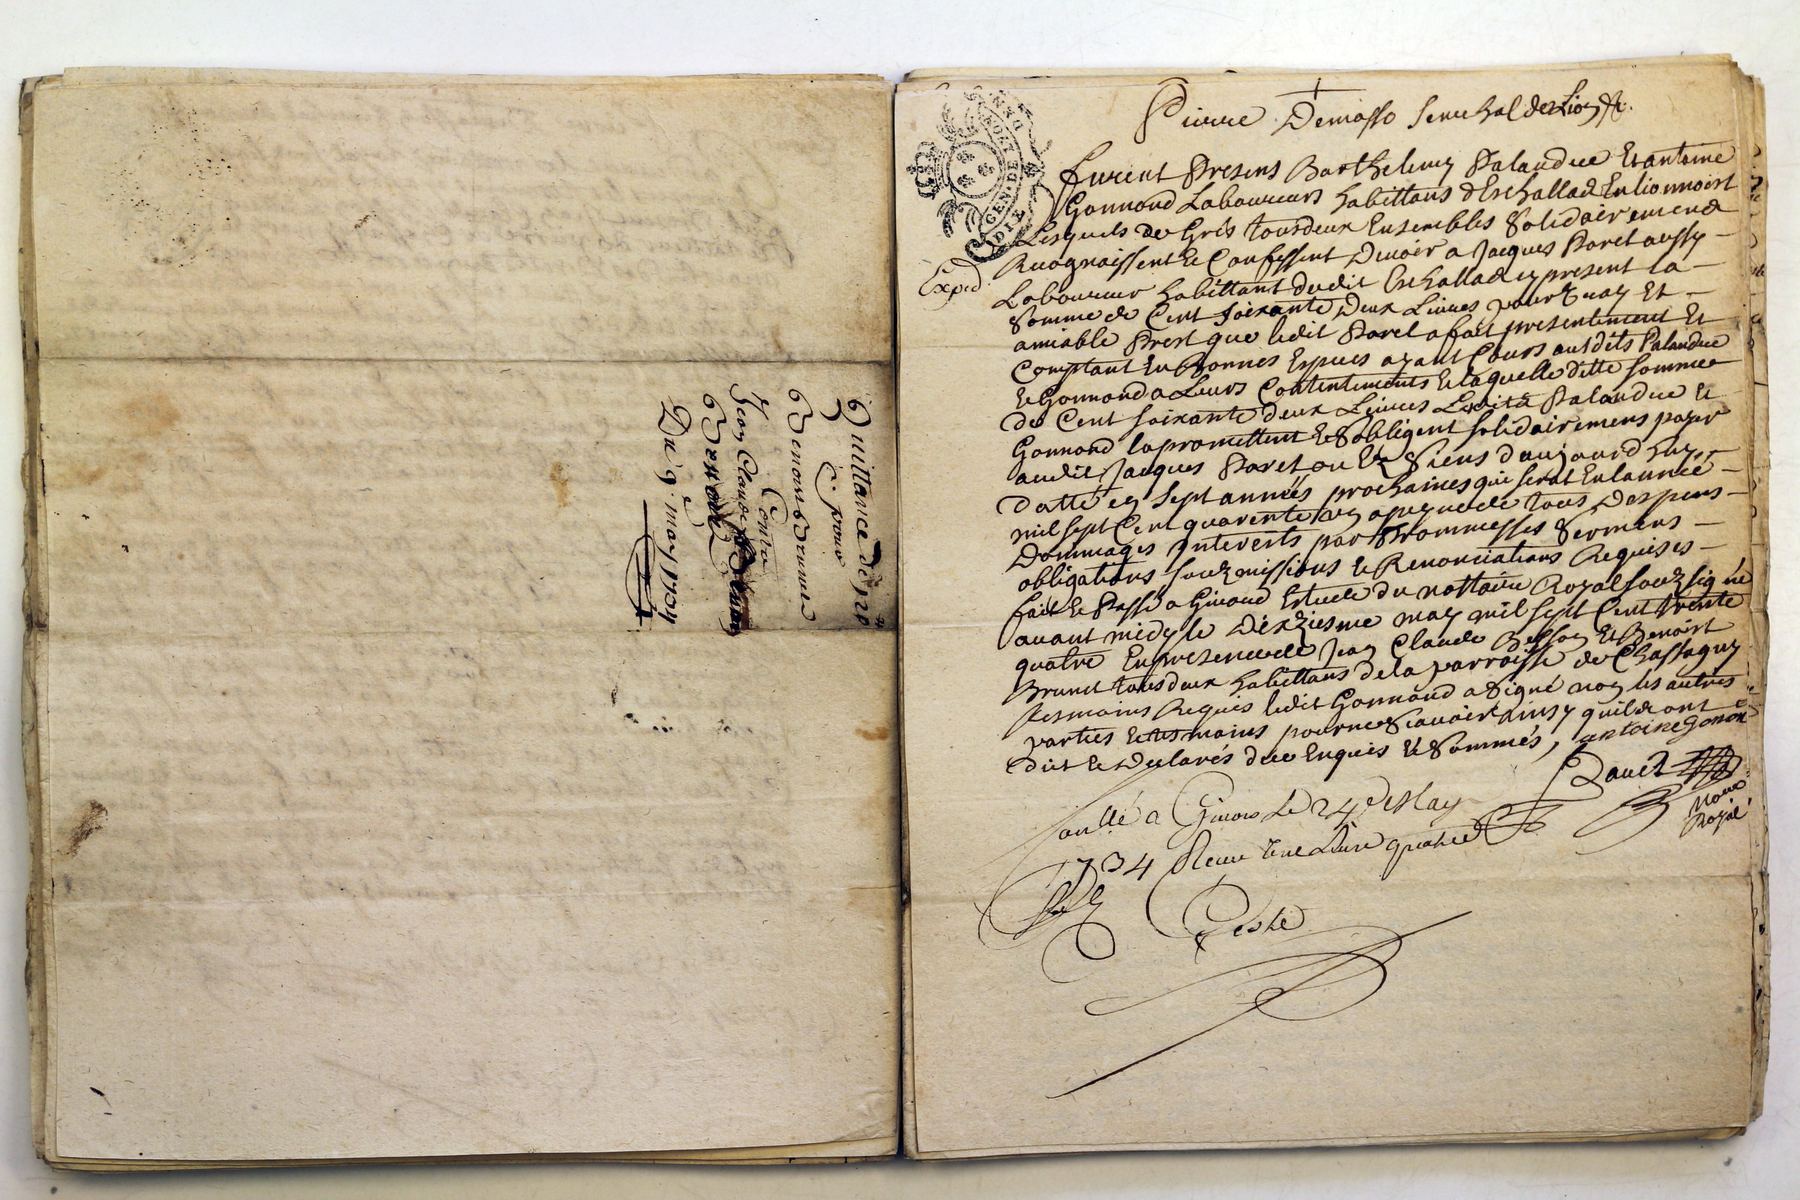 Quittance de 120
pour
Benoist Brunet
Contre
Jean Claude
Besson
Du 9e may 1734
Pierre Demasso Senechal de Lion &c.
DIX
GEN. DE
Exped.
furent Presens Barthelemy Palandre Et antoine
Gonnond Laboureurs habittans d'Eschallas En lionnoist
Lesquels de Gres tousdeux Ensembles Solidairement
Recognoissent et Confessent Devoir a Jacques Poret aussy
Laboureur habittant dudit Eschallas cy present la
Somme de Cent soixante deux Livres pour Vray Et
amiable Prest que ledit Poret a fait presentement Et
Comptant En bonnes Especes ayant Cours ausdits Palandre
et Gonnond a Leurs Contentements Et laquelle ditte somme
de Cent soixante deux Livres Lesdits Palandre et
Gonnond la promettent et S'obligent solidairement payer
audit Jacques Poret ou Es Siens d'aujourd'huy
datté en Sept années prochaines qui serat En lannée
mil sept Cent quarente un a peyne de tous Despens
Dommages Interests par Promesses Sermens
obligations soubzmissions et Renonciations Requises
fait et Passé a Givord Estude du nottaire Royal soubzsigné
avant midy le dixziesme may mil sept Cent trente
quatre En presence de Jean Claude Besson Et Benoist
Brunet tous deux habittans de la parroisse de Chassagny
Tesmoins Requis ledit Gonnond a Signé non les autres
parties et tesmoins pour ne Scavoir Ainsy quils ont
dit et Declarés de ce Enquis et Sommés, antoine gonon
notre
Royal
Conllé a Givors le 24e May
1734 Receu une Livre quatre s
Teste